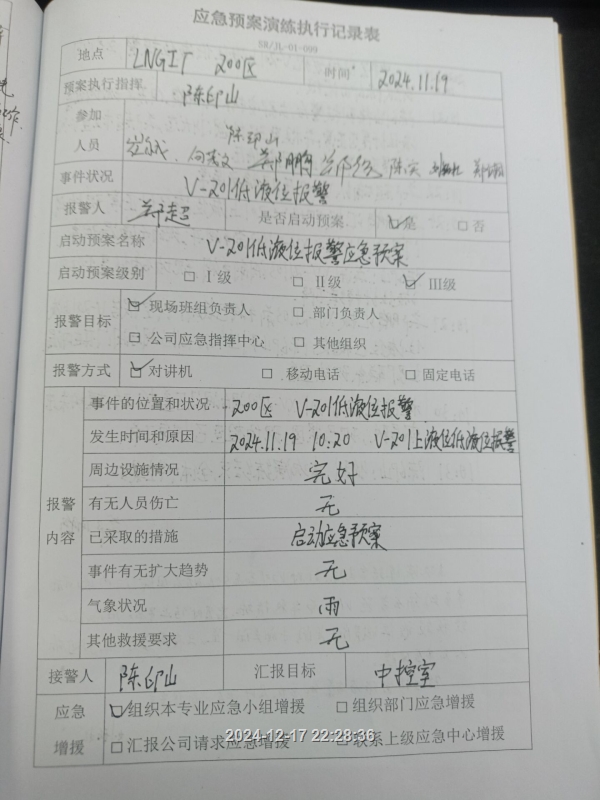 应急预案演练执行记录表
SR/JL-01-099
地点 LNG工厂 200区 时间 2024.11.19
预案执行指挥 陈印山
参加
人员
陈印山
郑鹏
陈实
事件状况 V-201低液位报警
报警人 郑超 是否启动预案 ☑是 □否
启动预案名称 V-201低液位报警应急预案
启动预案级别 □Ⅰ级 □Ⅱ级 ☑Ⅲ级
报警目标 ☑现场班组负责人 □部门负责人
□公司应急指挥中心 □其他组织
报警方式 ☑对讲机 □移动电话 □固定电话
报警
内容
事件的位置和状况 200区 V-201低液位报警
发生时间和原因 2024.11.19 10:20 V-201上液位低液位报警
周边设施情况 完好
有无人员伤亡 无
已采取的措施 启动应急预案
事件有无扩大趋势 无
气象状况 雨
其他救援要求 无
接警人 陈印山 汇报目标 中控室
应急
增援
☑组织本专业应急小组增援 □组织部门应急增援
□汇报公司请求应急增援 □联系上级应急中心增援
2024-12-17 22:28:36